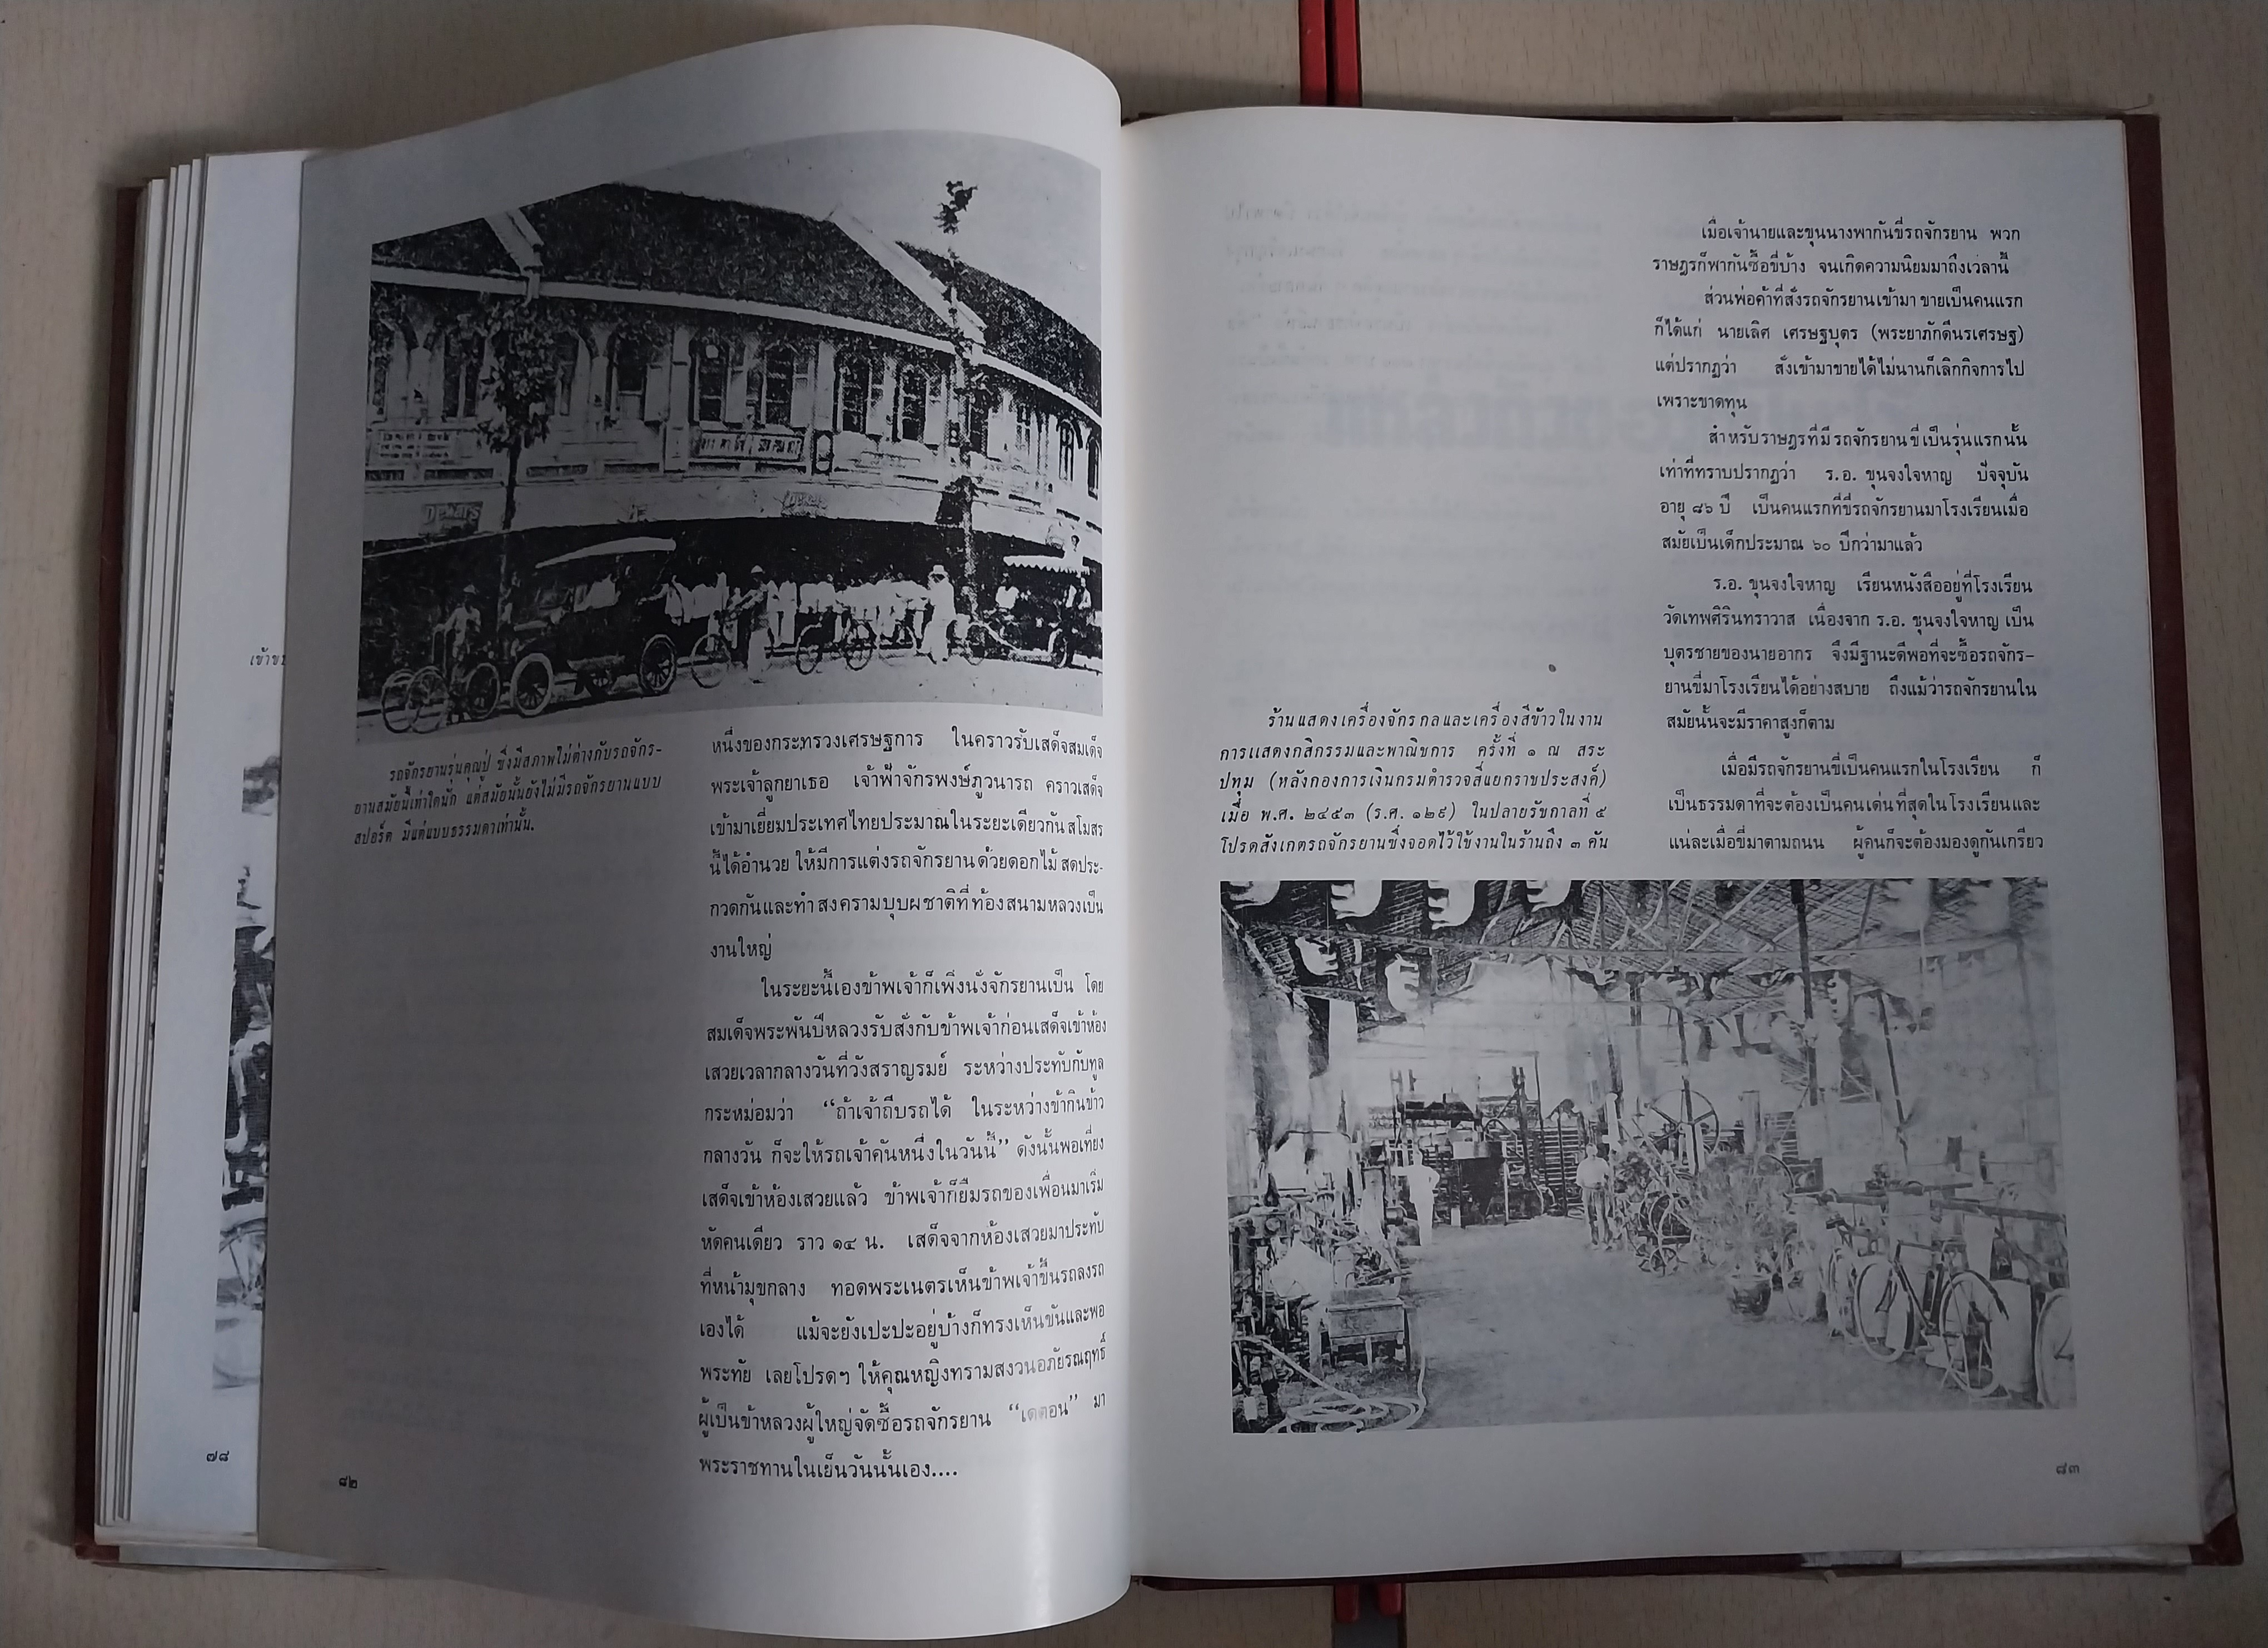 เข้าขบ
๗๘
Dekars
Dekars
รถจักรยานรุ่นคุณปู่ ซึ่งมีสภาพไม่ต่างกับรถจักร-
ยานสมัยนี้เท่าใดนัก แต่สมัยนั้นยังไม่มีรถจักรยานแบบ
สปอร์ต มีแต่แบบธรรมดาเท่านั้น.
หนึ่งของกระทรวงเศรษฐการ ในคราวรับเสด็จสมเด็จ
พระเจ้าลูกยาเธอ เจ้าฟ้าจักรพงษ์ภูวนารถ คราวเสด็จ
เข้ามาเยี่ยมประเทศไทยประมาณในระยะเดียวกัน สโมสร
นี้ได้อำนวย ให้มีการแต่งรถจักรยานด้วยดอกไม้ สดประ-
กวดกันและทำ สงครามบุบผชาติที่ ท้องสนามหลวงเป็น
งานใหญ่
ในระยะนี้เองข้าพเจ้าก็เพิ่งนั่งจักรยานเป็น โดย
สมเด็จพระพันปีหลวงรับสั่งกับข้าพเจ้าก่อนเสด็จเข้าห้อง
เสวยเวลากลางวันที่วังสราญรมย์ ระหว่างประทับกับทูล
กระหม่อมว่า “ถ้าเจ้าถีบรถได้ ในระหว่างข้ากินข้าว
กลางวัน ก็จะให้รถเจ้าคันหนึ่งในวันนี้” ดังนั้นพอเที่ยง
เสด็จเข้าห้องเสวยแล้ว ข้าพเจ้าก็ยืมรถของเพื่อนมาเริ่ม
หัดคนเดียว ราว ๑๔ น. เสด็จจากห้องเสวยมาประทับ
ที่หน้ามุขกลาง ทอดพระเนตรเห็นข้าพเจ้าขึ้นรถลงรถ
เองได้ แม้จะยังเปะปะอยู่บ้างก็ทรงเห็นขันและพอ
พระทัย เลยโปรดฯ ให้คุณหญิงทรามสงวนอภัยรณฤทธิ์
ผู้เป็นข้าหลวงผู้ใหญ่จัดซื้อรถจักรยาน “เดตอน” มา
พระราชทานในเย็นวันนั้นเอง....
๘๒
ร้านแสดงเครื่องจักรกลและเครื่องสีข้าวในงาน
การแสดงกสิกรรมและพาณิชการ ครั้งที่ ๑ ณ สระ
ปทุม (หลังกองการเงินกรมตำรวจสี่แยกราชประสงค์)
เมื่อ พ.ศ. ๒๔๕๓ (ร.ศ. ๑๒๙) ในปลายรัชกาลที่ ๕
โปรดสังเกตรถจักรยานซึ่งจอดไว้ใช้งานในร้านถึง ๓ คัน
เมื่อเจ้านายและขุนนางพากันขี่รถจักรยาน พวก
ราษฎรก็พากันซื้อขี่บ้าง จนเกิดความนิยมมาถึงเวลานี้
ส่วนพ่อค้าที่สั่งรถจักรยานเข้ามา ขายเป็นคนแรก
ก็ได้แก่ นายเลิศ เศรษฐบุตร (พระยาภักดีนรเศรษฐ)
แต่ปรากฏว่า สั่งเข้ามาขายได้ไม่นานก็เลิกกิจการไป
เพราะขาดทุน
สำหรับราษฎรที่มี รถจักรยาน ขี่เป็นรุ่นแรกนั้น
เท่าที่ทราบปรากฏว่า ร.อ. ขุนจงใจหาญ ปัจจุบัน
อายุ ๘๖ ปี เป็นคนแรกที่ขี่รถจักรยานมาโรงเรียนเมื่อ
สมัยเป็นเด็กประมาณ ๖๐ ปีกว่ามาแล้ว
ร.อ. ขุนจงใจหาญ เรียนหนังสืออยู่ที่โรงเรียน
วัดเทพศิรินทราวาส เนื่องจาก ร.อ. ขุนจงใจหาญ เป็น
บุตรชายของนายอากร จึงมีฐานะดีพอที่จะซื้อรถจักร-
ยานขี่มาโรงเรียนได้อย่างสบาย ถึงแม้ว่ารถจักรยานใน
สมัยนั้นจะมีราคาสูงก็ตาม
เมื่อมีรถจักรยานขี่เป็นคนแรกในโรงเรียน ก็
เป็นธรรมดาที่จะต้องเป็นคนเด่นที่สุดในโรงเรียนและ
แน่ละเมื่อขี่มาตามถนน ผู้คนก็จะต้องมองดูกันเกรียว
๘๓